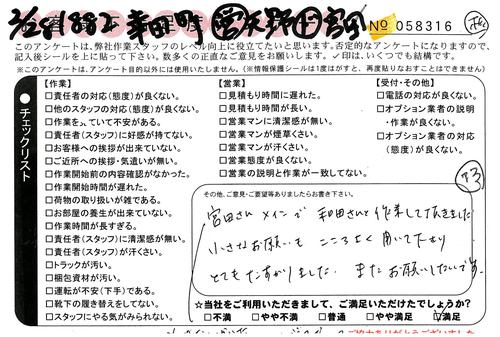 3/28 1882 幸田町 営 天野 作 宮田
№ 058316
このアンケートは、弊社作業スタッフのレベル向上に役立てたいと思います。否定的なアンケートになりますので、
記入後シールを上に貼って下さい。数多くの正直なご意見をお願いします。✓印は、いくつでも結構です。
※このアンケートは、アンケート目的以外には使用いたしません。(※情報保護シールは1度はがすと、再度貼りなおすことはできません。)
チェックリスト
【作業】
□責任者の対応(態度)が良くない。
□他のスタッフの対応(態度)が良くない。
□作業をっていて不安がある。
□責任者(スタッフ)に好感が持てない。
□お客様への挨拶が出来ていない。
□ご近所への挨拶・気遣いが無い。
□作業開始前の内容確認がなかった。
□作業開始時間が遅れた。
□荷物の取り扱いが雑である。
□お部屋の養生が出来ていない。
□作業時間が長すぎる。
□責任者(スタッフ)に清潔感が無い。
□責任者(スタッフ)が汗くさい。
□トラックが汚い。
□梱包資材が汚い。
□運転が不安(下手)である。
□靴下の履き替えをしてない。
□スタッフにやる気がみられない。
【営業】
□見積もり時間に遅れた。
□見積もり時間が長い。
□営業マンに清潔感が無い。
□営業マンが煙草くさい。
□営業マンが汗くさい。
□営業態度が良くない。
□営業の説明と作業が一致してない。
【受付・その他】
□電話の対応が良くない。
□オプション業者の説明
・作業が良くない。
□オプション業者の対応
(態度)が良くない。
その他、ご意見・ご要望等ありましたらお書き下さい。
宮田さんメインで 和田さんと作業して頂きました
小さなお願いも こころよく聞いて下さり
とてもたすかりました. またお願いしたいです。
☆当社をご利用いただきまして、ご満足いただけたでしょうか?
□不満 □やや不満 □普通 □やや満足 ☑満足